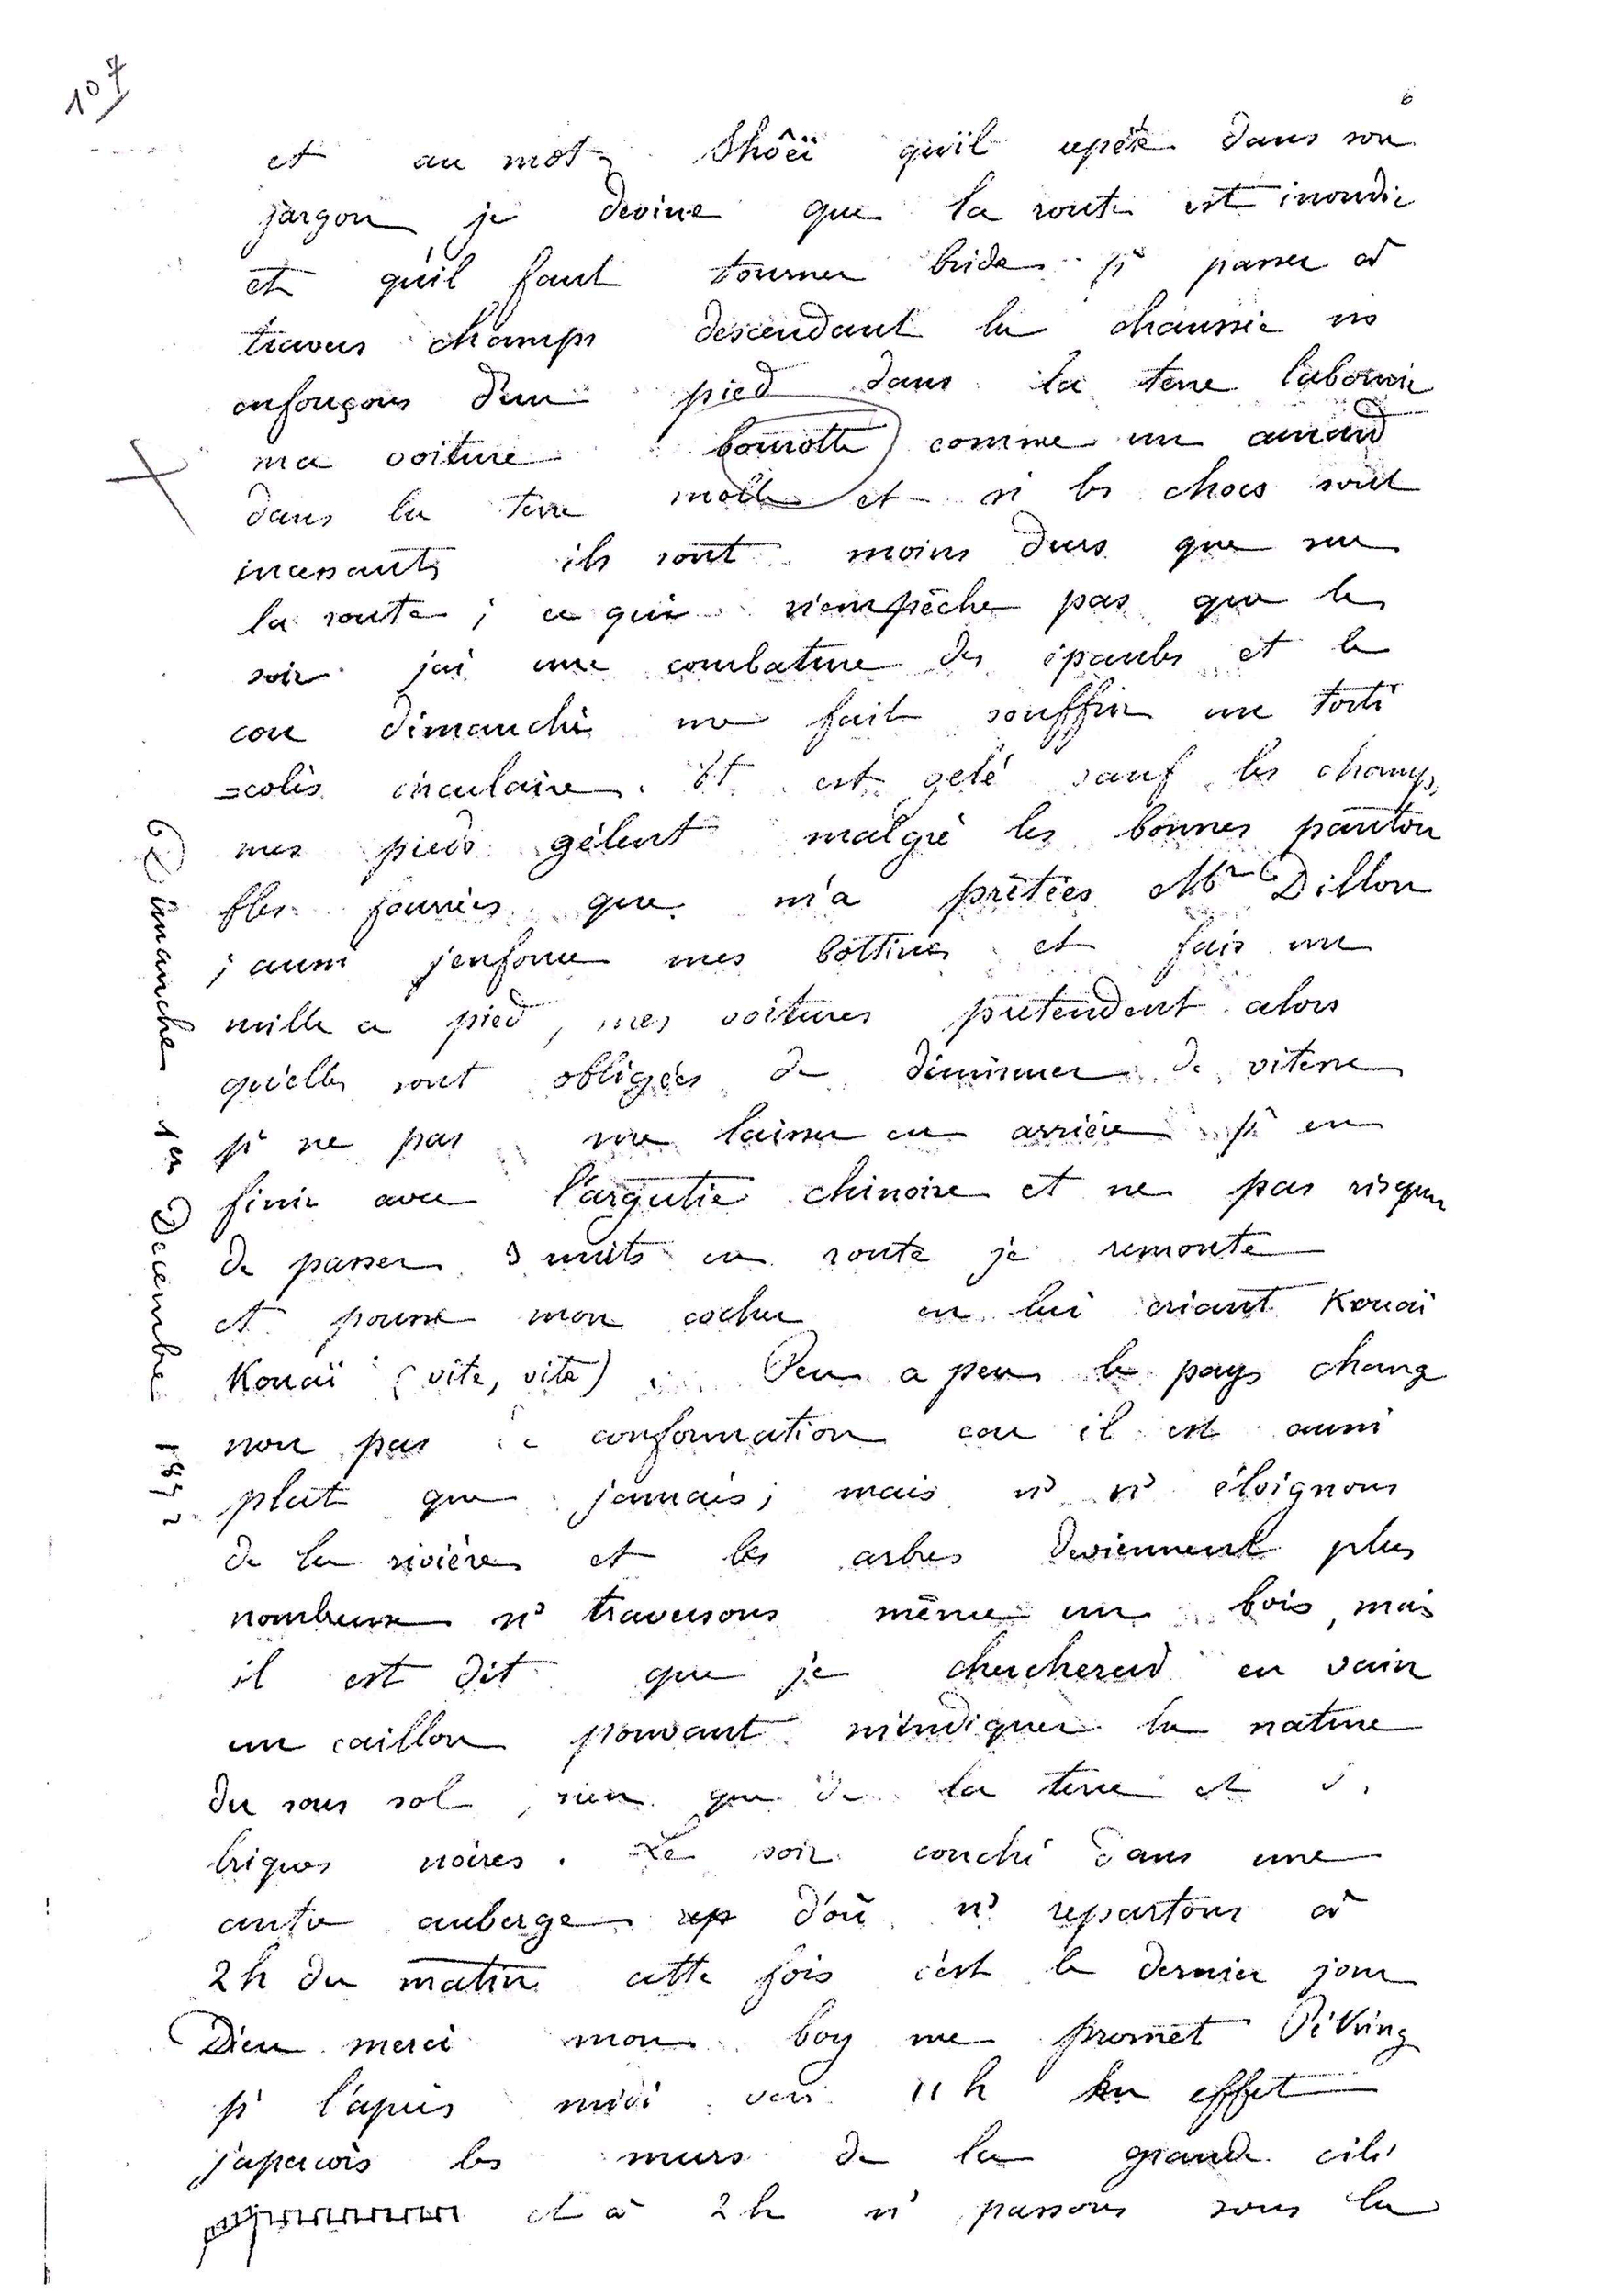 107
6
et au mot Shôëï qu'il repète dans son
jargon je devine que la route est inondée
et qu'il faut tourner bride pr passer à
travers champs descendant la chaussée ns
enfonçons d'un pied dans la terre labourée
ma voiture bourotte comme un canard
dans la terre molle et si les chocs sont
incessants ils sont moins durs que sur
la route ; ce qui n'empêche pas que le
soir j'ai une courbature des épaules et le
cou démanché me fait souffrir un torti
=colis circulaire. Tt est gelé sauf les champs,
mes pieds gélent malgré les bonnes pantou
fles fourrées que m'a prêtées Mr Dillon
; aussi j'enfourne mes bottines et fais un
mille a pied, mes voitures prétendent alors
qu'elles sont obligées de diminuer de vitesse
pr ne pas me laisser en arrière pr en
finir avec l'argutie chinoise et ne pas risquer
de passer 3 nuits en route je remonte
et pousse mon cocher en lui criant Kouaï
Kouaï (vite, vite). Peu a peu le pays change
non pas de conformation car il est aussi
plat que jamais; mais ns ns éloignons
de la rivière et les arbres deviennent plus
nombreux ns traversons même un bois, mais
il est dit que je chercherai en vain
un caillou pouvant m'indiquer la nature
du sous sol, rien que de la terre et
briques noires. Le soir couché dans une
autre auberge rep d'où ns repartons à
2h du matin cette fois c'est le dernier jour
Dieu merci mon boy me promet Péking
pr l'après midi vers 11h En effet
j'aperçois les murs de la grande cité
et à 2h ns passons sous la
Dimanche 1er Décembre 1872